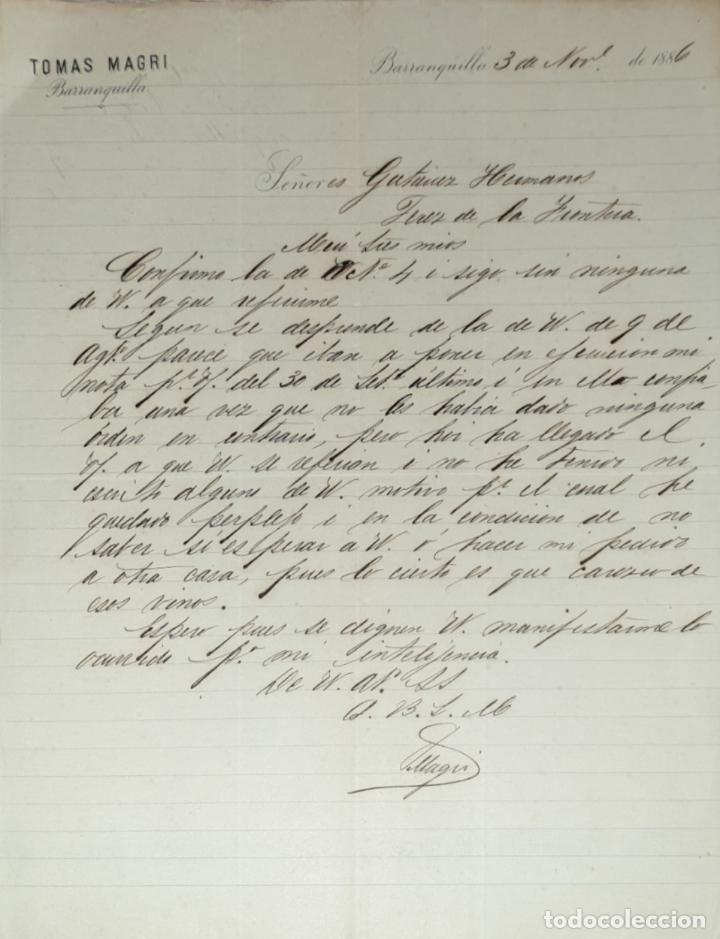 TOMAS MAGRI
Barranquilla
Barranquilla 3 de Nov.e de 1886
Señores Gutiérrez Hermanos
Jerez de la Frontera.
Mui Sres mios
Confirmo la de No. 4 i sigo sin ninguna
de W. a que referirme
Segun se desprende de la de W. de 9 de
Agto. parece que iban a poner en ejecucion mi
nota pa. del 30 de último i en ella confia-
ba una vez que no les habia dado ninguna
órden en contrario, pero hoi ha llegado el
a que W. se referian i no he tenido ni
escrito alguno de W. motivo pr. el cual he
quedado perplejo i en la condicion de no
saber si esperar a W. ó hacer mi pedido
a otra casa, pues lo cierto es que carezco de
esos vinos.
Espero pues se dignen W. manifestarme lo
ocurrido pa. mi intelijencia.
De W. At. SS
Q. B. S. M
TMagri
todocoleccion.net